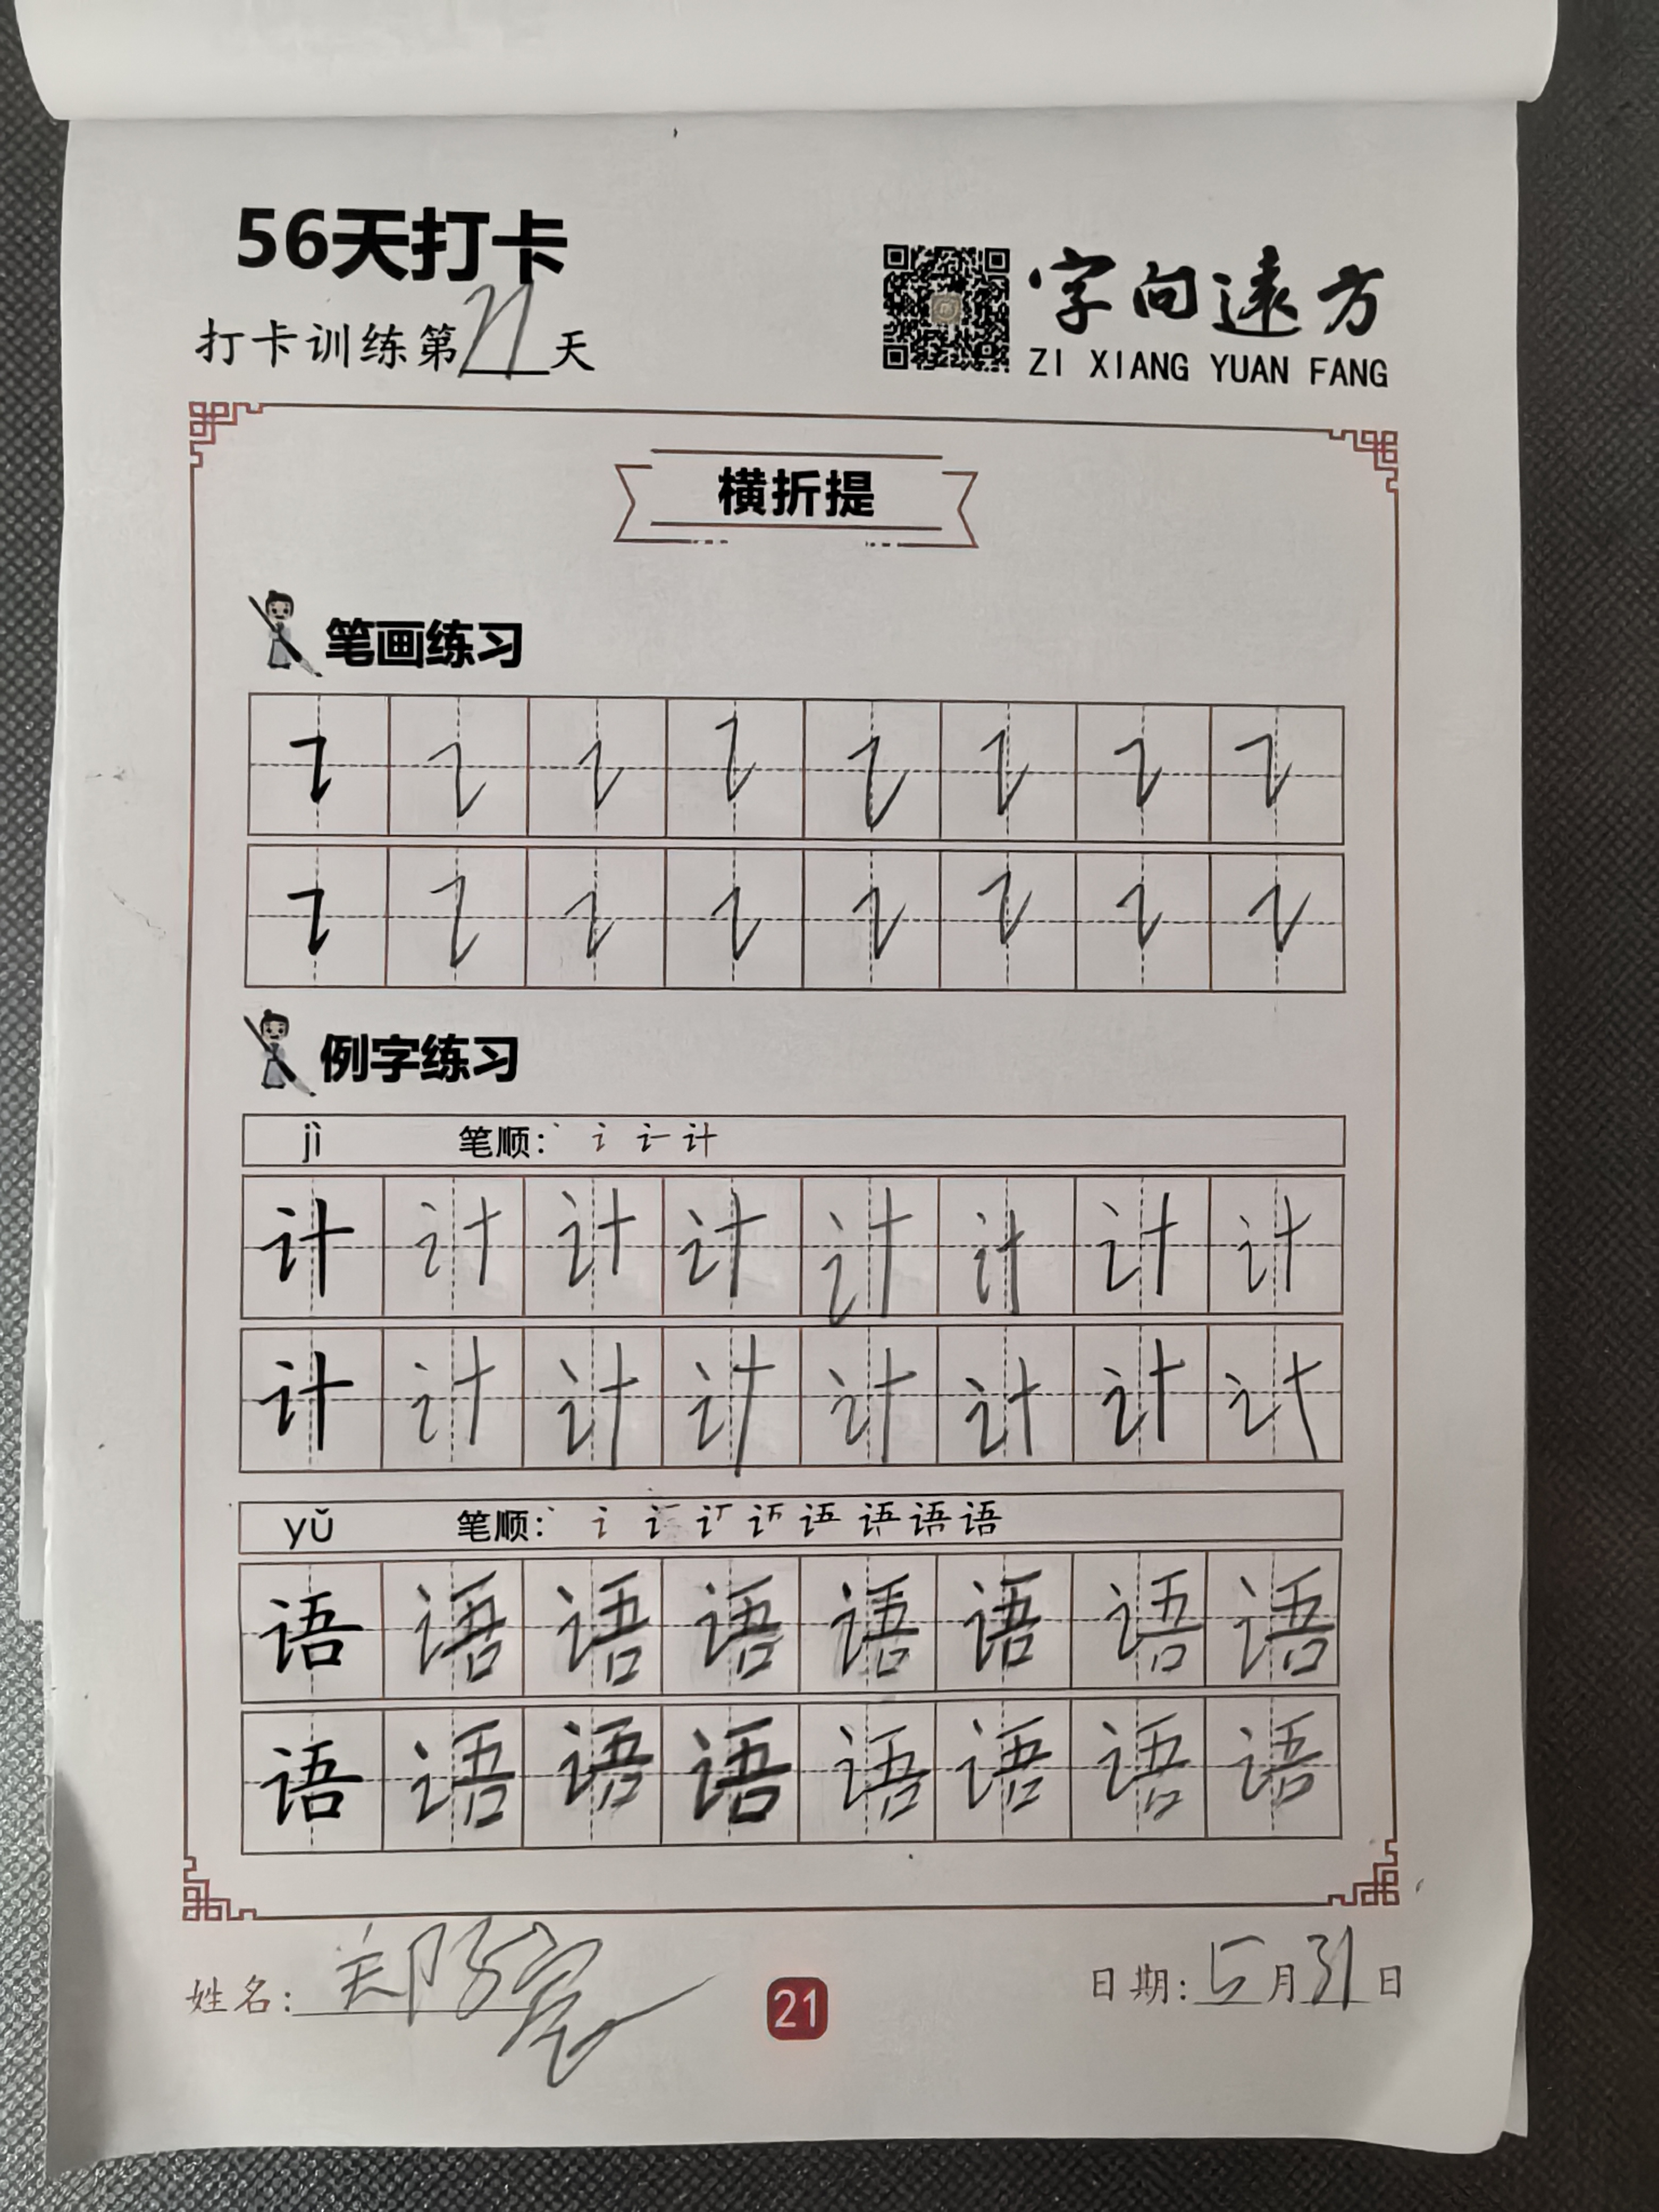 56天打卡
打卡训练第21天
字向遠方
ZI XIANG YUAN FANG
横折提
笔画练习
例字练习
jì 笔顺: 计
计 计 计 计 计 计 计 计
计 计 计 计 计 计 计 计
yǔ 笔顺: 语 语 语
语 语 语 语 语 语 语 语
语 语 语 语 语 语 语 语
姓名: 郑
21
日期: 5月31日